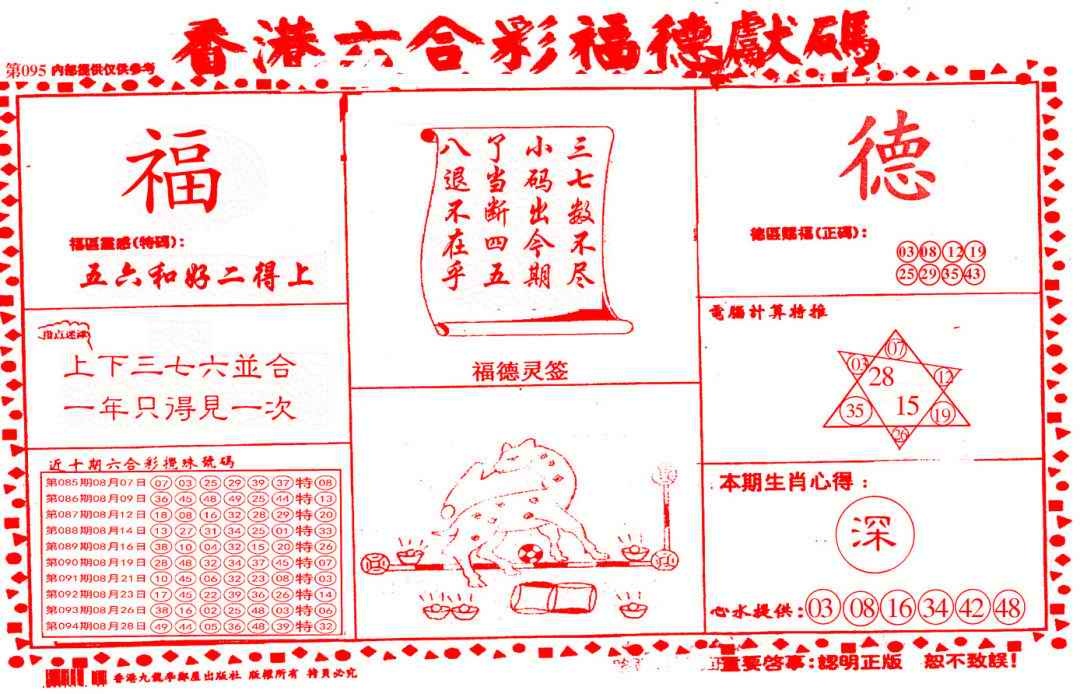 香港六合彩福德獻碼
第095 内部提供仅供参考
福
福區靈感(特碼):
五六和好二得上
上下三七六並合
一年只得見一次
近十期六合彩攪珠號碼
第085期08月07日 07 03 25 29 39 37 特 08
第086期08月09日 36 45 48 49 25 44 特 13
第087期08月12日 18 08 16 32 28 29 特 20
第088期08月14日 13 27 31 34 25 01 特 33
第089期08月16日 38 10 04 32 15 20 特 26
第090期08月19日 28 48 32 34 37 45 特 07
第091期08月21日 10 45 06 32 23 08 特 03
第092期08月23日 17 45 22 39 36 26 特 14
第093期08月26日 38 16 02 25 48 03 特 06
第094期08月28日 49 44 05 36 48 39 特 32
三七数不尽
小码出今期
了当断四五
八退不在乎
福德灵签
德
德區賜福(正碼):
03 08 12 19
25 29 35 43
電腦計算特推
07
03
28
12
35
15
19
26
本期生肖心得:
深
心水提供: 03 08 16 34 42 48
重要啓事:認明正版 恕不致誤!
出版社 版權所有